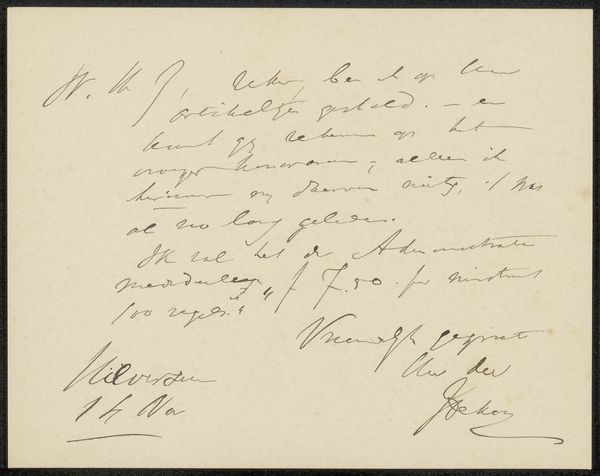 W. H. zeker, ben ik op Uw
artikeltjes gesteld. – en
kunt gij rekenen op het
vroeger honorarium; alleen ik
herinner mij daarvan niets, 't was
al zo lang geleden.
Ik zal het de Administratie
mededeelen „ f 7.50 per
100 regels."
Vriendelijk gegroet
Uw dw
Hilversum
14 Nov